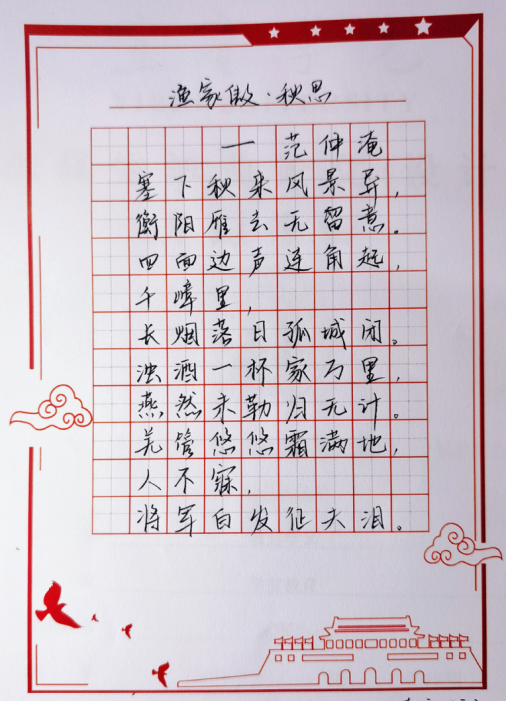 渔家傲·秋思
——范仲淹
塞下秋来风景异，
衡阳雁去无留意。
四面边声连角起，
千嶂里，
长烟落日孤城闭。
浊酒一杯家万里，
燕然未勒归无计。
羌管悠悠霜满地，
人不寐，
将军白发征夫泪。